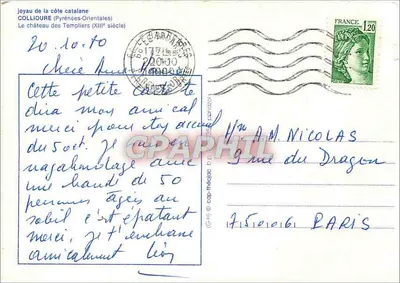 joyau de la côte catalane
COLLIOURE (Pyrénées-Orientales)
Le château des Templiers (XIIIᵉ siècle)
20.10.80
Chère
Cette petite carte te
dira mon amical
merci pour ton accueil
du 5 oct. Je suis en
avec
une bande de 50
personnes âgées au
soleil c'est épatant
merci, je t'embrasse
amicalement
FRANCE
1,20
A.M NICOLAS
9 rue du Dragon
PARIS
CPAPHIL